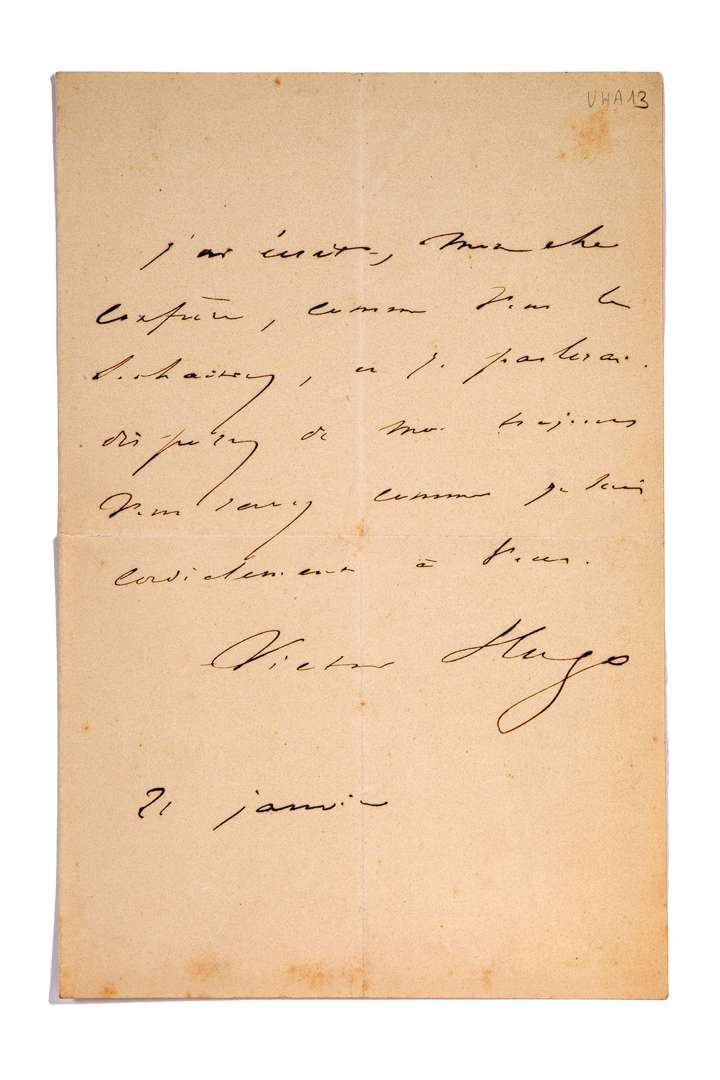 VHA13
j'ai écrit, mon cher
confrère, comme vous le
souhaitez, et je parlerai.
disposez de moi toujours
Vous savez comme je suis
cordialement à vous.
Victor Hugo
21 janvier